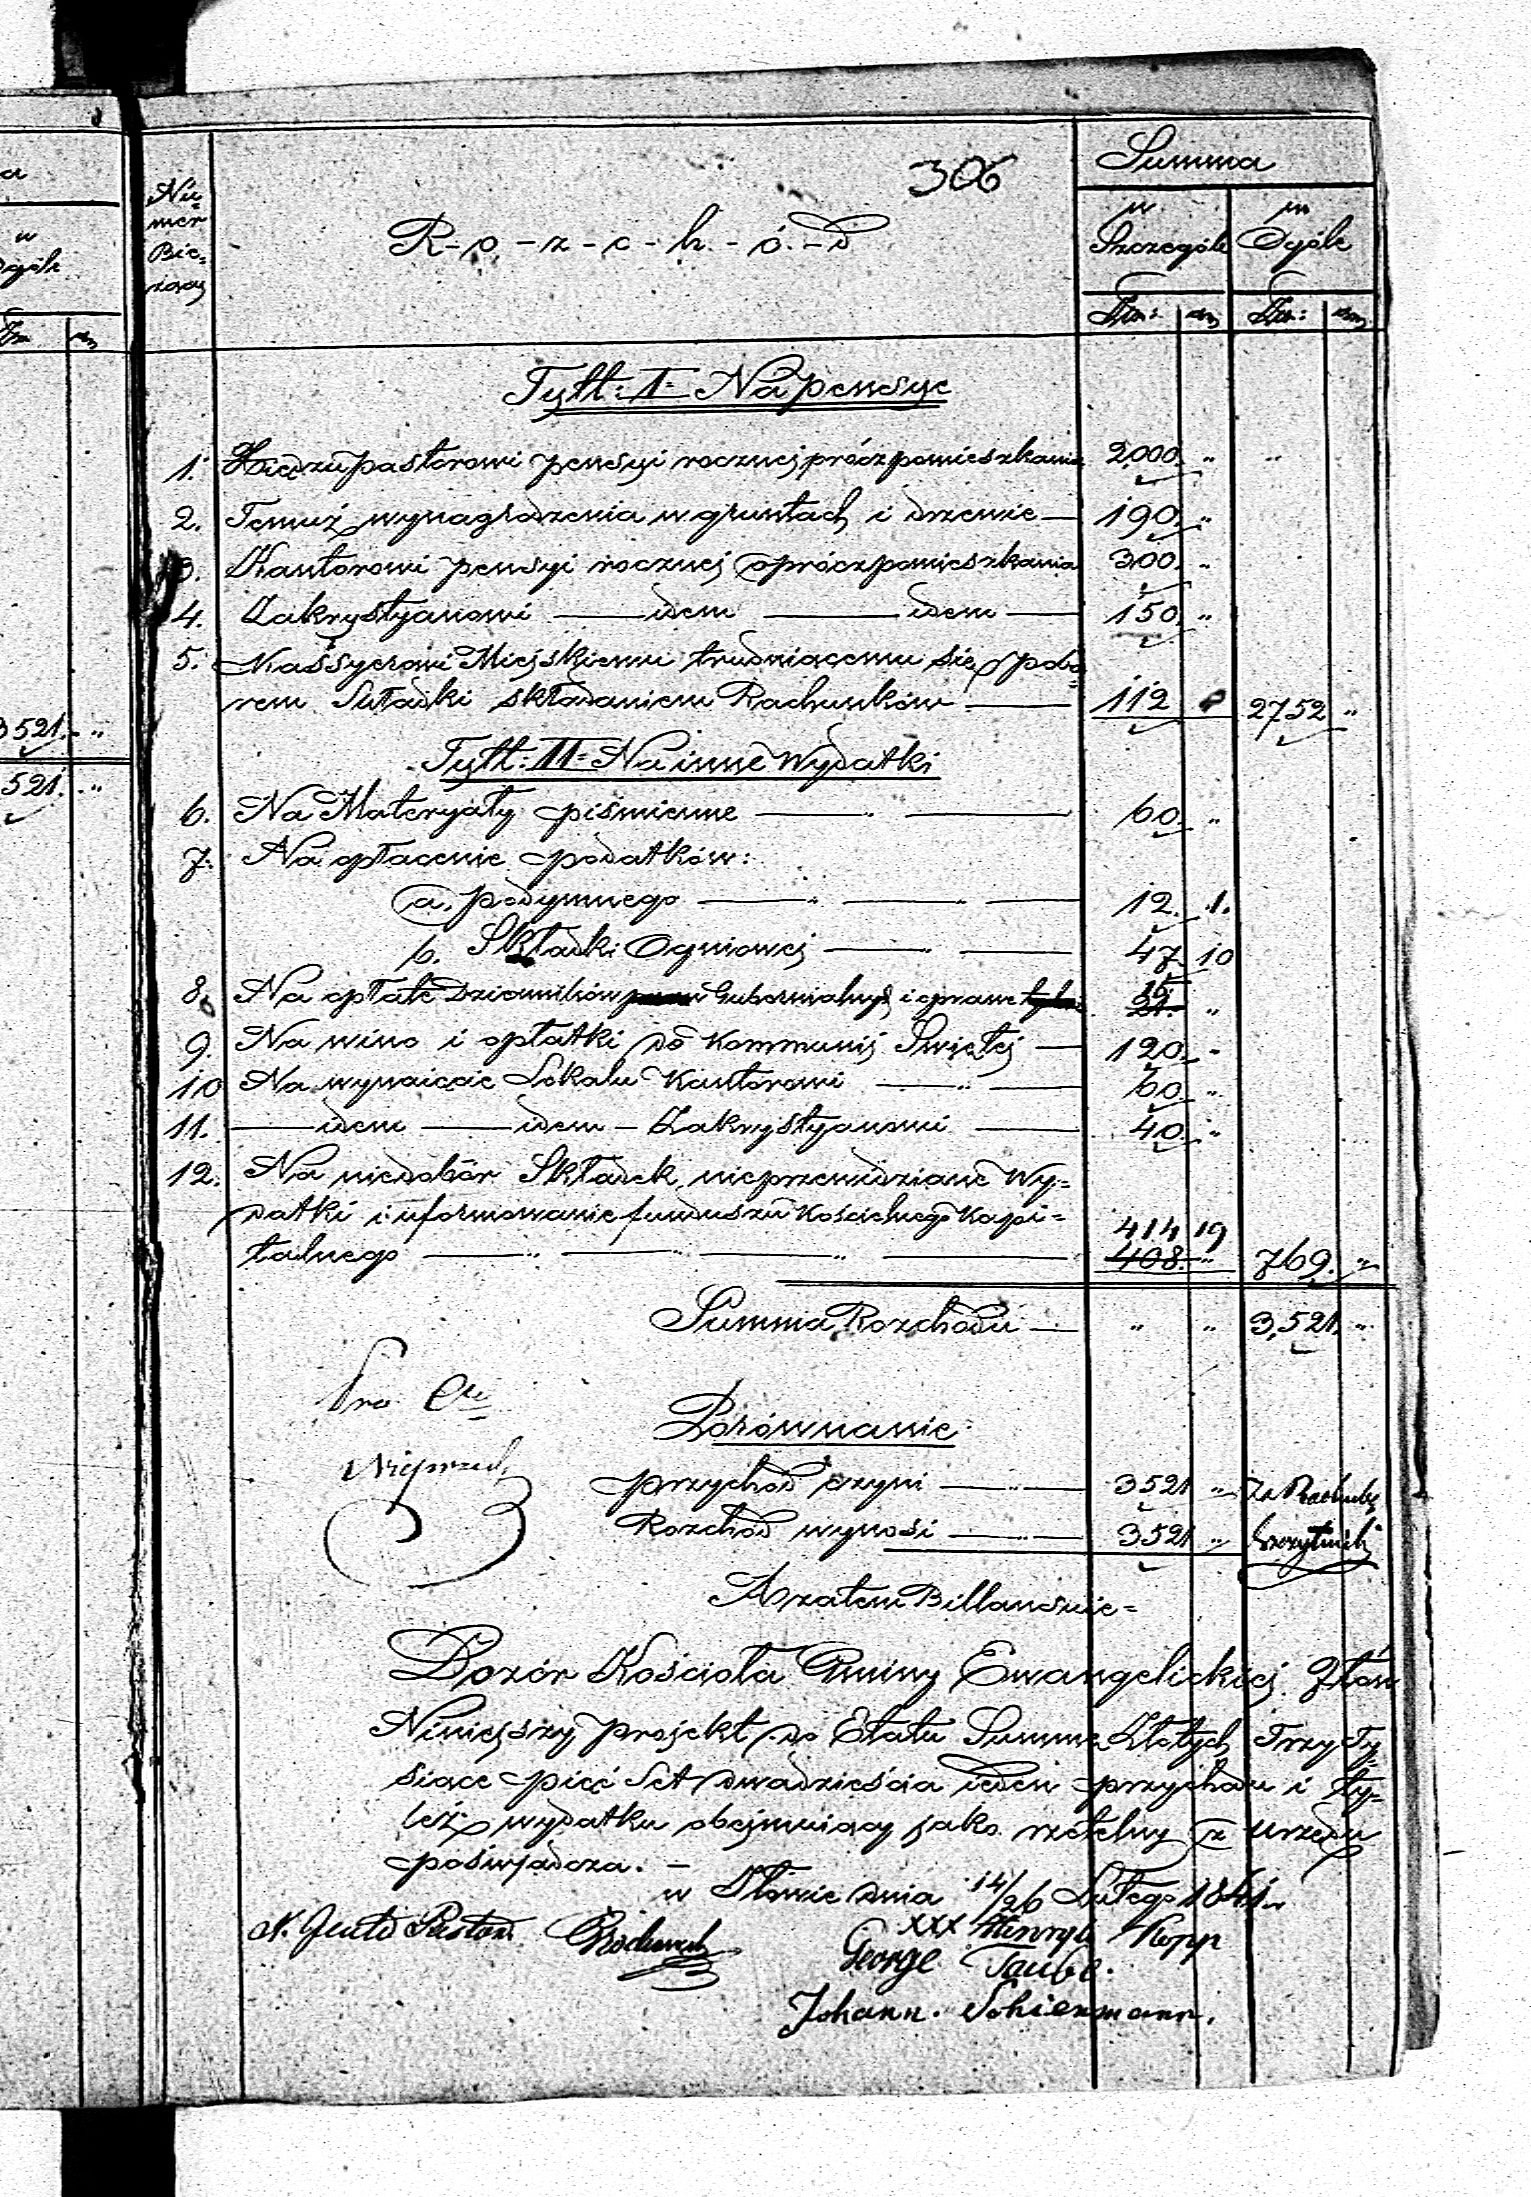 306
Summa
Nu=
mer
Bie=
żący
R-o-z-c-h-ó-d
w
Szczególe
w
Ogóle
Złr: gr Złr: gr
Tytt: I= Na pensye
1. Xiędzu pastorowi pensyi rocznej prócz pomieszkania 2000. „ „
2. Temuż wynagrodzenia w gruntach i drzewie — 190. „
3. Kantorowi pensyi rocznej oprócz pomieszkania 300. „
4. Zakrystyanowi — idem — idem — 150. „
5. Kassyerowi Miejskiemu trudniącemu się pobo=
rem Składki składaniem Rachunków — 112 2752 „
Tytt: II= Na inne Wydatki
6. Na Materyały piśmienne — „ — 60. „
7. Na opłacenie podatków:
a. podymnego — „ — „ — 12. 1.
b. Składki Ogniowej — „ — 47. 10
8. Na opłatę Dzienników Gubernialnych i oprawę 15. 21. „
9. Na wino i opłatki do Kommunij Świętej — 120. „
10 Na wynaięcie Lokalu Kantorowi — „ — 60. „
11. — idem — idem — Zakrystyanowi — 40. „
12. Na niedobór Składek, nieprzewidziane Wy=
datki i uformowanie funduszu Kościelnego Kapi=
talnego — „ — „ — „ — 414 19 408. „ 769. „
Summa Rozchodu — „ „ 3,521. „
3521. „
521. „
Pro
Porównanie
przychód czyni — „ — 3521 „ Za
Rozchód wynosi — „ — 3521 „
A zatem Billansuie=
Dozór Kościoła Gminy Ewangelickiej
Niniejszy projekt do Etatu Summę Złotych Trzy Ty=
siące pięć Set dwadzieścia ieden przychodu i ty=
leż wydatku obejmuiący jako rzetelny z urzędu
poświadcza. —
w dnia 14/26 Lutego 1841.
Pastor
XXX Henryk Kopp
George Taube.
Johann. Schienmann.